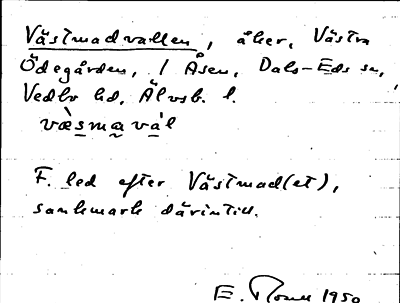 Västmadvallen, åker, Västra
Ödegården, / Åsen, Dals-Eds sn,
Vedbo hd, Älvsb. l.
væ̀smavál
F. led efter Västmad(et),
sankmark därintill.
E. 1950